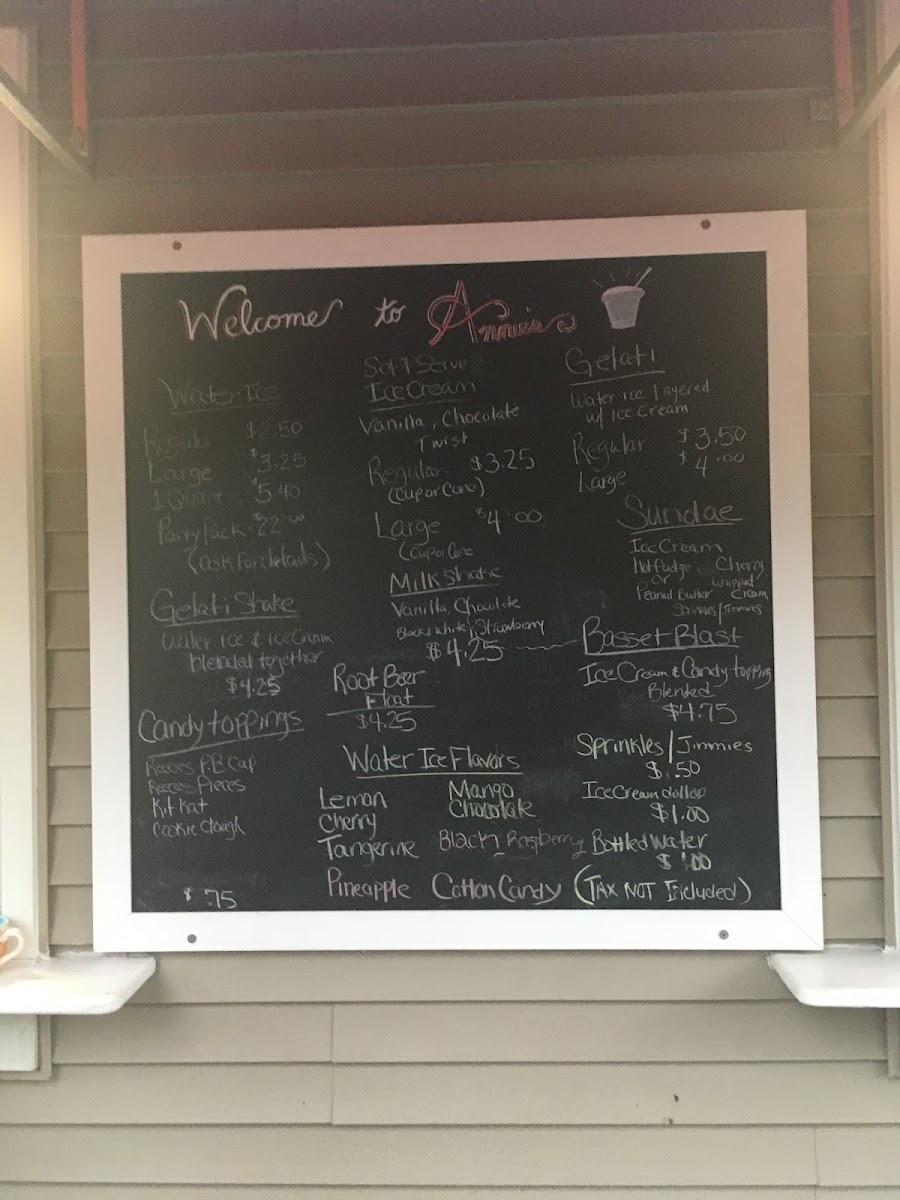 Welcome to Annie's
Water Ice
Regular $2.50
Large $3.25
1 Quart $5.40
Party Pack $22.00
(ask for details)
Gelati Shake
Water ice & ice cream
blended together
$4.25
Candy toppings
Reeces P.B Cup
Reeces Pieces
Kit Kat
Cookie dough
$.75
Soft Serve
Ice Cream
Vanilla, Chocolate
Twist
Regular $3.25
(Cup or Cone)
Large $4.00
(Cup or Cone
Milkshake
Vanilla, Chocolate
Black & White, Strawberry
$4.25
Root Beer
Float
$4.25
Gelati
Water ice layered
w/ ice cream
Regular $3.50
Large $4.00
Sundae
Ice Cream
Hot fudge Cherry
or Whipped
Peanut Butter Cream
Sprinkles/Jimmies
Basset Blast
Ice Cream & Candy topping
Blended
$4.75
Water Ice Flavors
Lemon Mango
Cherry Chocolate
Tangerine Black Raspberry
Pineapple Cotton Candy
Sprinkles/Jimmies
$.50
Ice Cream dollop
$1.00
Bottled Water
$1.00
(TAX NOT Included)